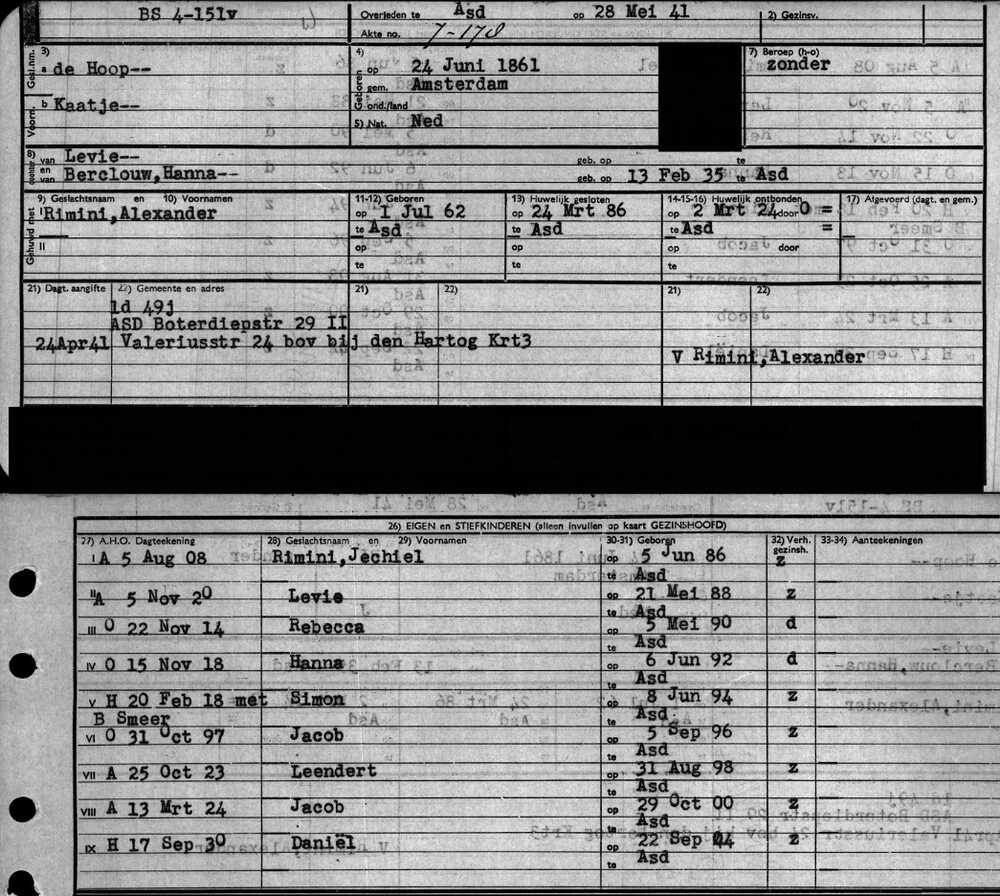 BS 4-151v
Overleden te Asd op 28 Mei 41
2) Gezinsv.
Akte no. 7-178
3) Gesl.nm. a de Hoop--
4) Geboren op 24 Juni 1861
gem. Amsterdam
ond./land
7) Beroep (h-o)
zonder
Voorn. b Kaatje--
5) Nat. Ned
8) dochter van Levie-- geb. op te
en van Berclouw,Hanna-- geb. op 13 Feb 35 te Asd
9) Geslachtsnaam en 10) Voornamen
11-12) Geboren
13) Huwelijk gesloten
14-15-16) Huwelijk ontbonden
17) Afgevoerd (dagt. en gem.)
Gehuwd met
I Rimini,Alexander op 1 Jul 62 op 24 Mrt 86 op 2 Mrt 24 door O =
te Asd te Asd te Asd =
II op op op door
te te te
21) Dagt. aangifte 22) Gemeente en adres 21) 22) 21) 22)
ld 49j
ASD Boterdiepstr 29 II
24Apr41 Valeriusstr 24 bov bij den Hartog Krt3
V Rimini,Alexander
26) EIGEN en STIEFKINDEREN (alleen invullen op kaart GEZINSHOOFD)
27) A.H.O. Dagteekening 28) Geslachtsnaam en 29) Voornamen 30-31) Geboren 32) Verh. gezinsh. 33-34) Aanteekeningen
I A 5 Aug 08 Rimini,Jechiel op 5 Jun 86 z
te Asd
II A 5 Nov 20 Levie op 21 Mei 88 z
te Asd
III O 22 Nov 14 Rebecca op 5 Mei 90 d
te Asd
IV O 15 Nov 18 Hanna op 6 Jun 92 d
te Asd
V H 20 Feb 18 met Simon op 8 Jun 94 z
B Smeer te Asd
VI O 31 Oct 97 Jacob op 5 Sep 96 z
te Asd
VII A 25 Oct 23 Leendert op 31 Aug 98 z
te Asd
VIII A 13 Mrt 24 Jacob op 29 Oct 00 z
te Asd
IX H 17 Sep 30 Daniël op 22 Sep z
te Asd